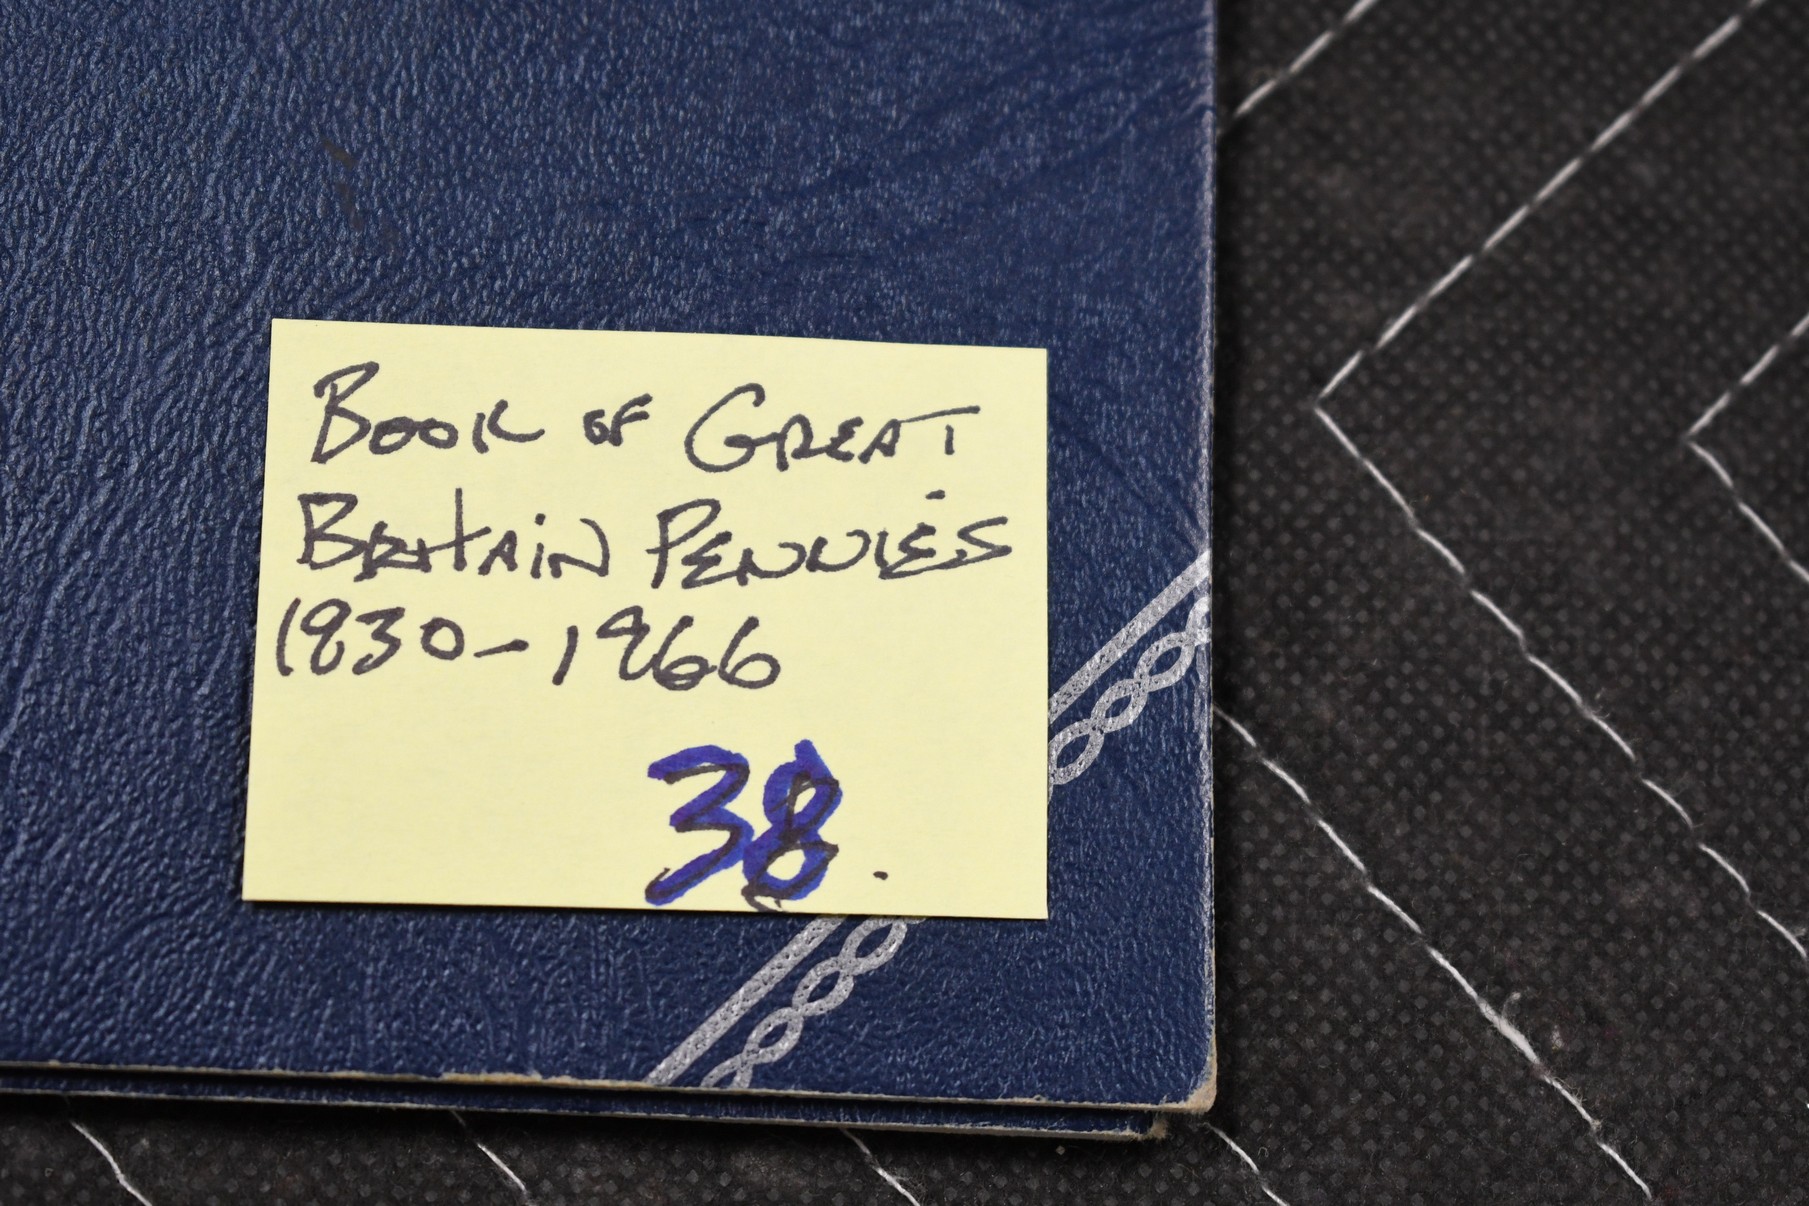 Book of Great
Britain Pennies
1930-1966
38.